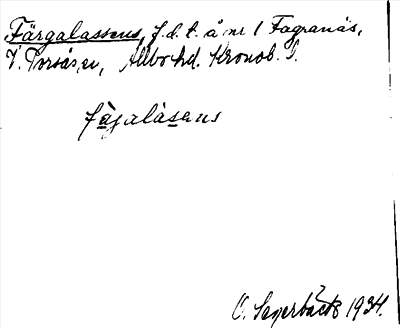 Färgalassens, f.d.t. å nr 1 Fagranäs,
V. Torsås sn, Allbo hd. Kronob. l.
fàgalàsens
O. Sagerbäck 1934.